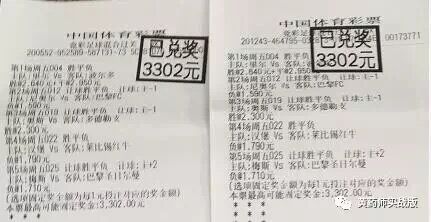 中国体育彩票
竞彩足球混合过关
200552-952589-587131-73
已兑奖
3302元
第1场周五004 胜平负
第2场周五012 让球胜平负 让球:主-1
第3场周五019 让球胜平负 让球:主-1
主队:尼奥尔 Vs 客队:巴黎FC
胜@2.300元
第4场周五022 胜平负
主队:汉堡 Vs 客队:莱比锡红牛
负@1.790元
第5场周五025 让球胜平负 让球:主+2
主队:梅斯 Vs 客队:巴黎圣日尔曼
负@1.710元
(选项固定奖金额为每1元投注对应的奖金额)
本票最高可能固定奖金:3,302.00元
* * *
中国体育彩票
已兑奖
3302元
00173771
第1场周五004 胜平负
第2场周五012 让球胜平负 让球:主-1
主队:尼奥尔 Vs 客队:巴黎FC
负@1.590元
第3场周五019 让球胜平负 让球:主-1
胜@2.300元
第4场周五022 胜平负
主队:汉堡 Vs 客队:莱比锡红牛
负@1.790元
第5场周五025 让球胜平负 让球:主+2
主队:梅斯 Vs 客队:巴黎圣日尔曼
负@1.710元
(选项固定奖金额为每1元投注对应的奖金额)
本票最高可能固定奖金:3,302.00元
* * *
黄药师实战版